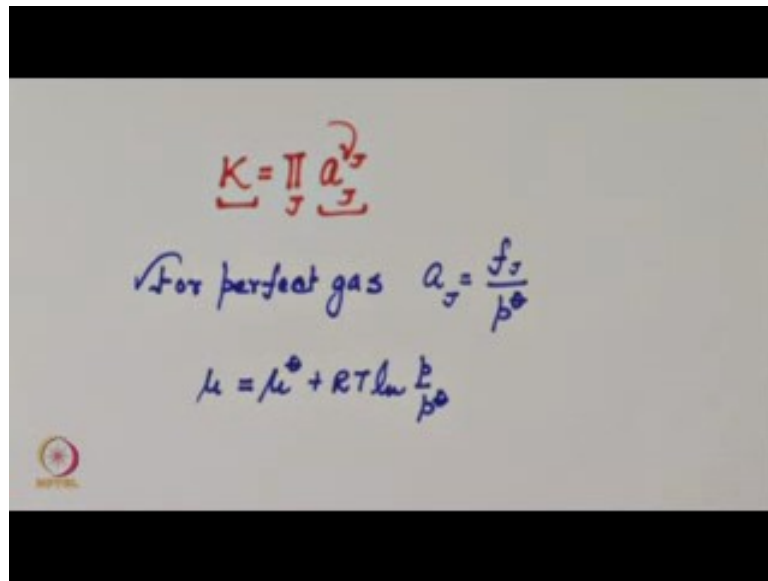 K = Π_J a_J^{ν_J}
For perfect gas a_J = f_J / p^⊖
μ = μ^⊖ + RT ln p / p^⊖
NPTEL